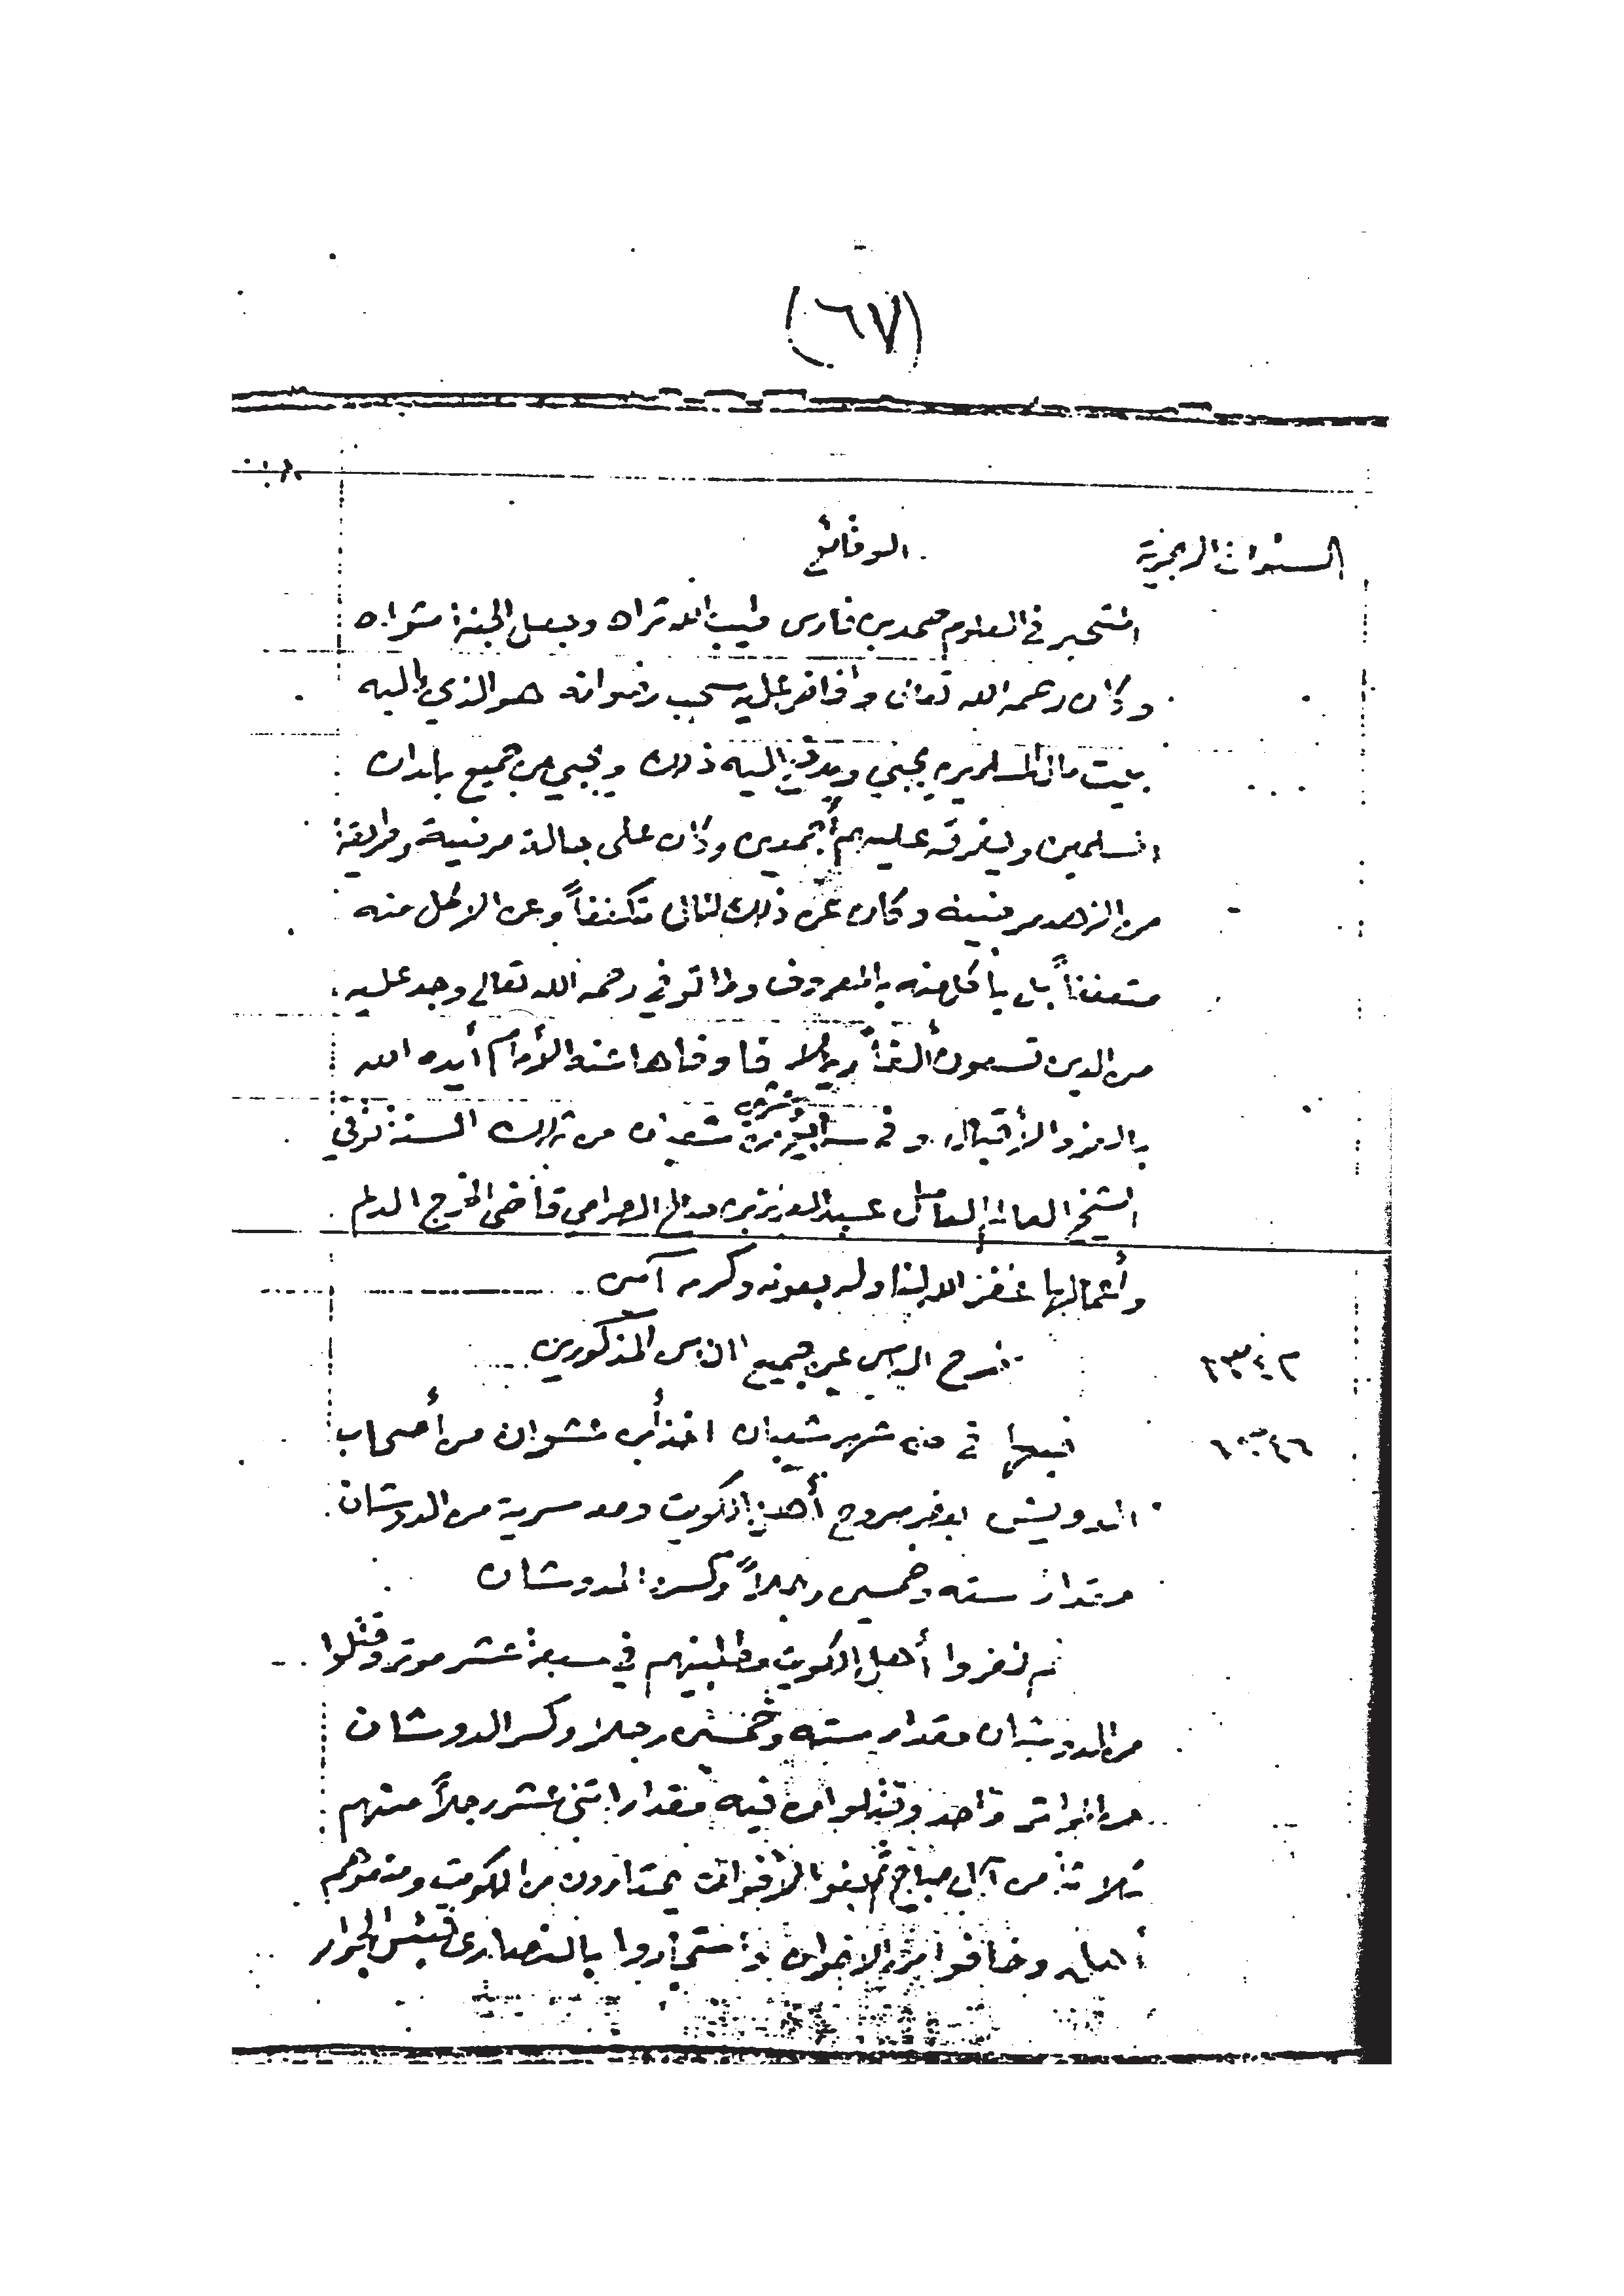 (٦٧)
السنوات الهجرية
الوقائع
المتبحر في العلوم محمد بن فارس طيب الله ثراه وجعل الجنة مثواه
وكان رحمه الله تعالى وأفاض عليه سحب رضوانه هو الذي إليه
بيت مال المسلمين يجبي ويدفع إليه ذلك ويجبي من جميع بلدان
المسلمين ويفرقه عليهم أجمعين وكان على حالة مرضية وطريقة
من الزهد مرضية وكان عن ذلك المال متكففاً وعن الأكل منه
متعففاً بل يأكل منه بالمعروف ولما توفي رحمه الله تعالى وجد عليه
من الدين تسعون ألفاً ريالاً فأوفاها عنه الإمام أيده الله
بالعز والإقبال وفي سابع وعشرين من شعبان من تلك السنة توفي
الشيخ العالم العامل عبد العزيز بن صالح الصرامي قاضي الخرج الدلم
وأعمالها غفر الله لنا وله بعونه وكرمه آمين
طرح الدين عن جميع الناس المذكورين
١٣٤٢
فيها في ٢٥ شهر شعبان أخذ ابن عشوان من أصحاب
١٣٤٦
الدويش أهل الكويت ومعه سرية من الدوشان
مقدار ستة وخمسين رجلاً وكسر الدوشان
ثم نفروا أهل الكويت وطلبتهم في سبعة عشر موتر وقتلوا
من الدوشان مقدار ستة وخمسين رجلاً وكسر الدوشان
من الموتر واحد وقتلوا من فيه مقدار اثني عشر رجلاً منهم
ثلاثة من آل صباح ثم بغوا الإخوان يمتارون من الكويت ومنعوهم
أهله وخافوا من الإخوان واستجاروا بالنصارى فبئس الجوار